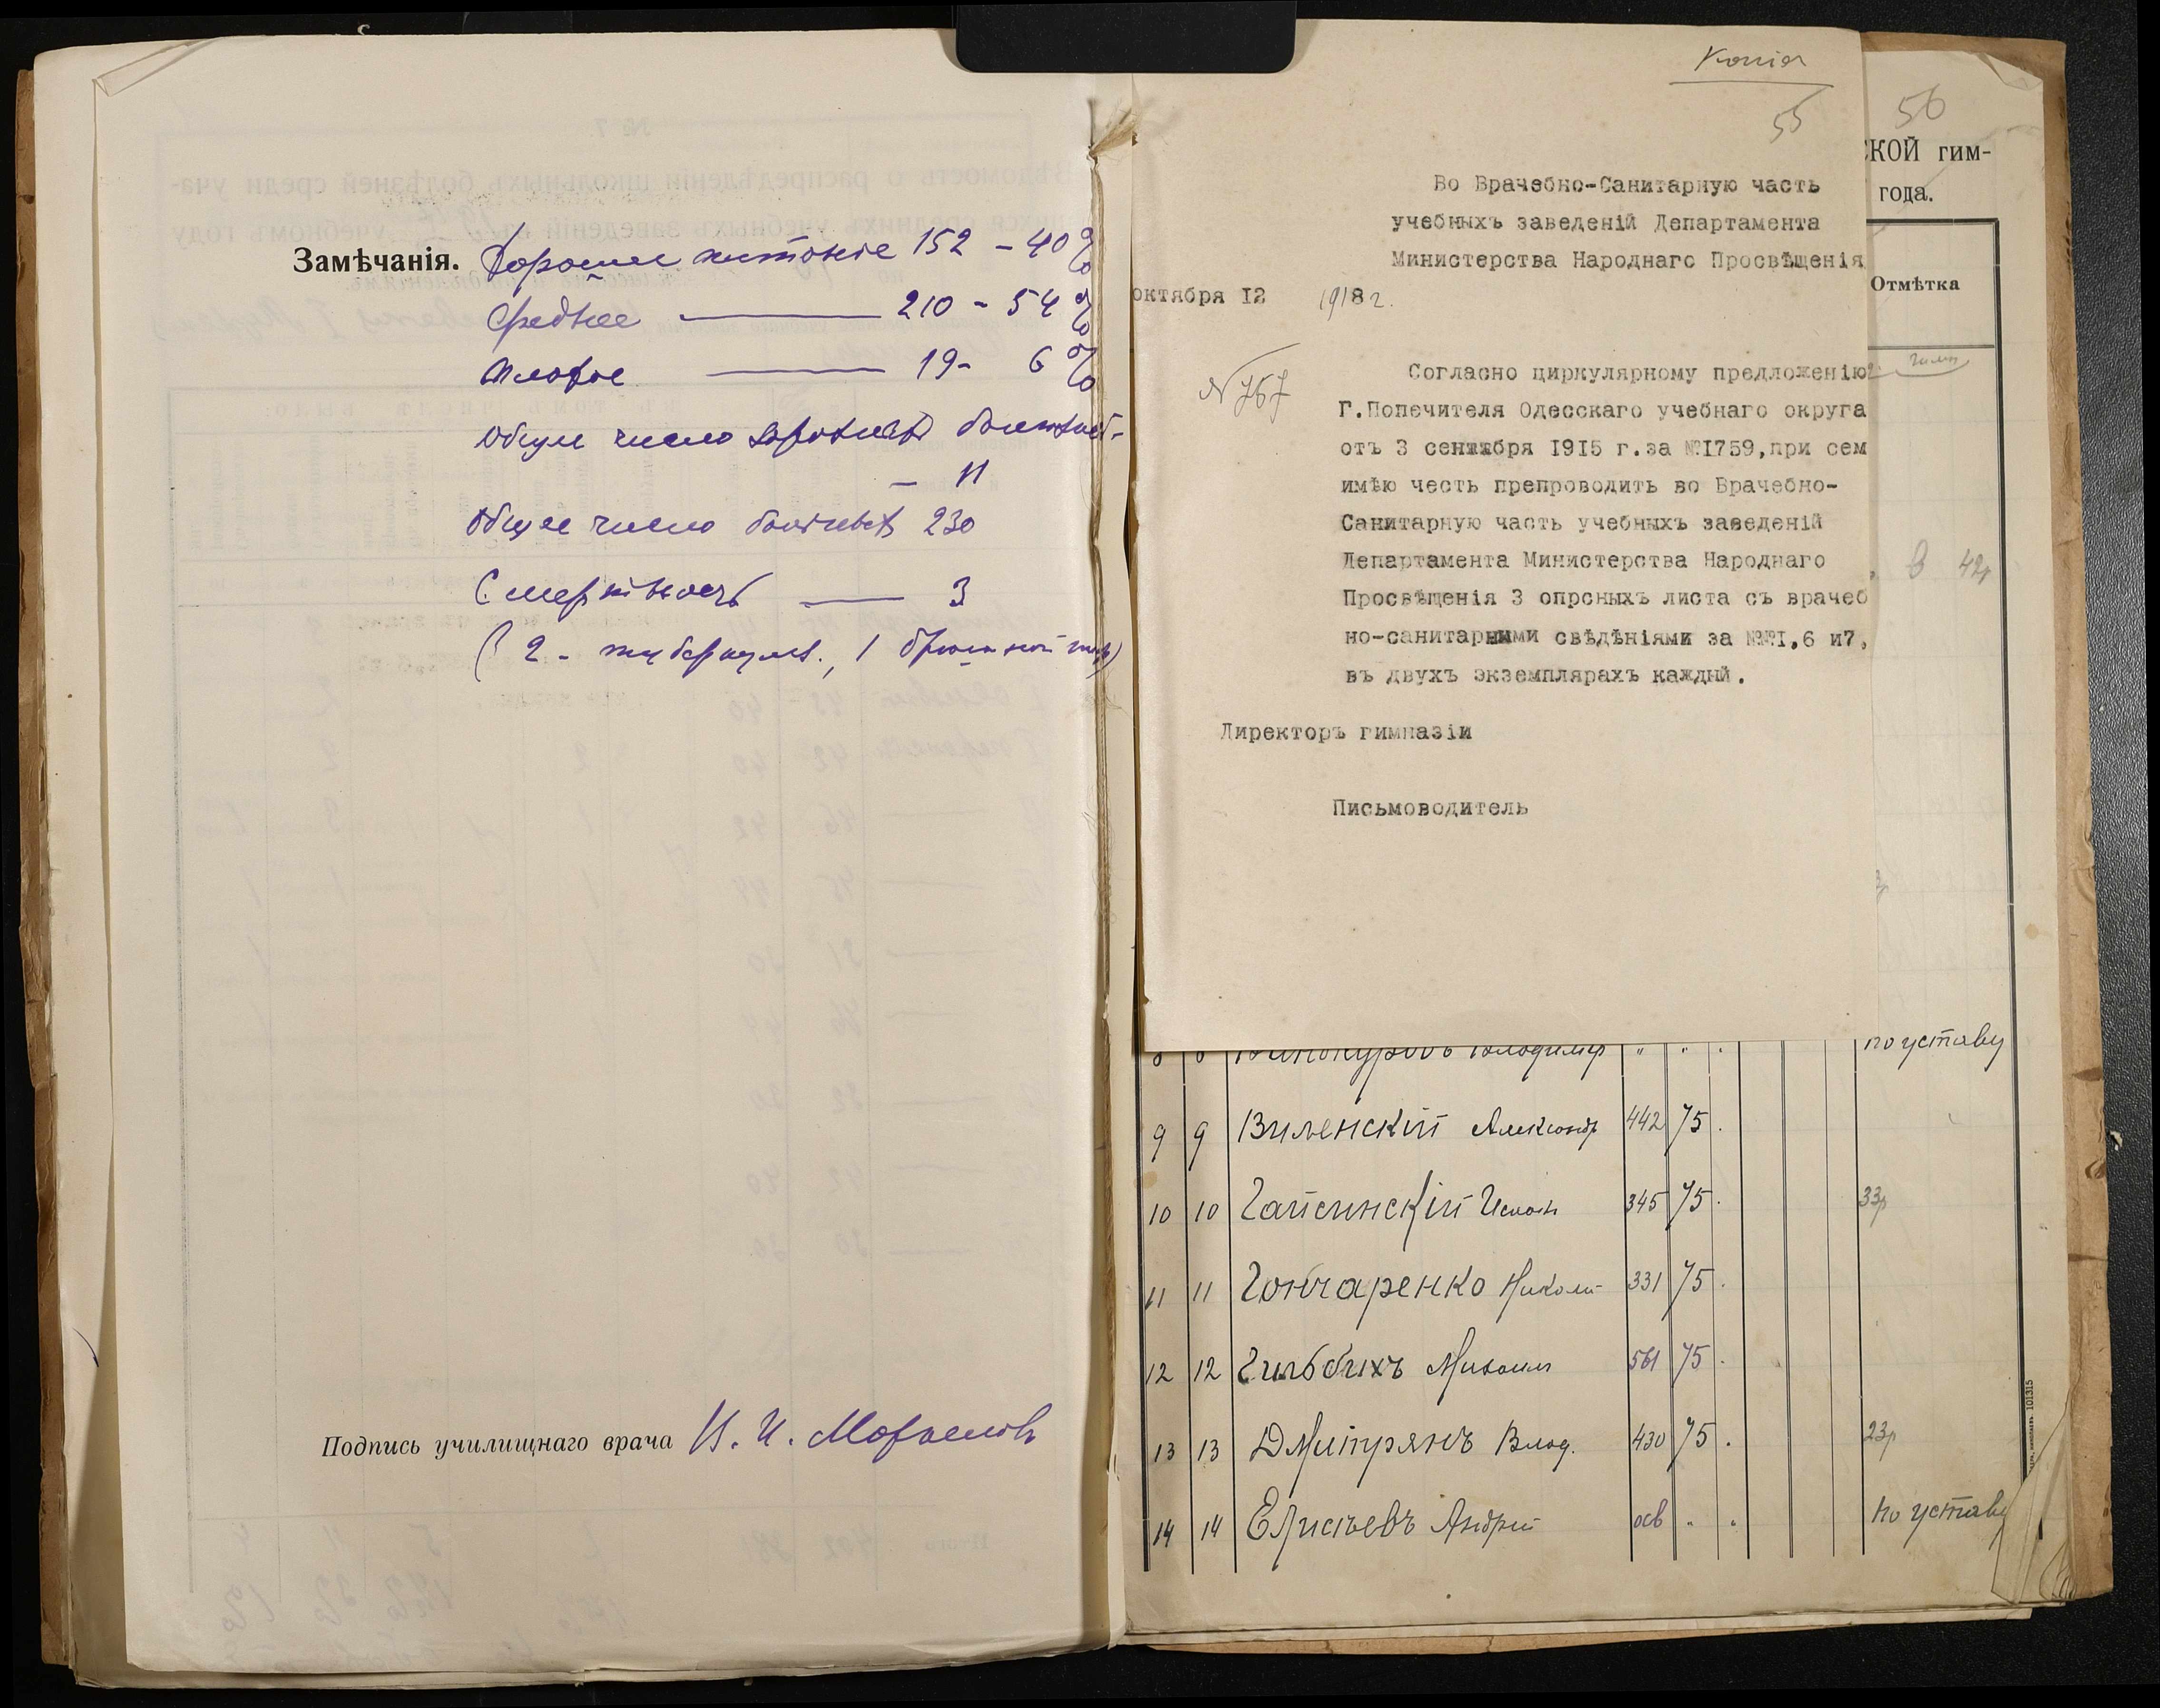 Замѣчанія. Хорошее питаніе 152 - 40%
Среднее — 210 - 54%
Плохое — 19 - 6%
Общее число заразныхъ
— 11
Общее число 230
Смертность — 3
(2 - туберкулез., 1 брюшной тиф)
Подпись училищнаго врача
Копія
55
Во Врачебно-Санитарную часть
учебныхъ заведеній Департамента
Министерства Народнаго Просвѣщенія
октября 12 1918 г.
№ 767
Согласно циркулярному предложенію
Г.Попечителя Одесскаго учебнаго округа
отъ 3 сентября 1915 г.за №1759,при сем
имѣю честь препроводить во Врачебно-
Санитарную часть учебныхъ заведеній
Департамента Министерства Народнаго
Просвѣщенія 3 опрсныхъ листа съ врачеб
но-санитарными свѣдѣніями за №№1,6 и7,
въ двухъ экземплярахъ каждый.
Директоръ гимназіи
Письмоводитель
56
СКОЙ гим-
года.
Отмѣтка
42р
Владимір " " . по уставу
9 9 Виленскій Александр 442 75 .
10 10 345 75 . 33р
11 11 Гончаренко Николай 331 75 .
12 12 Михаил 561 75 .
13 13 Дмитрянъ Влад. 430 75 . 23р
14 14 Елисѣевъ Андрей осв " " по уставу
101315